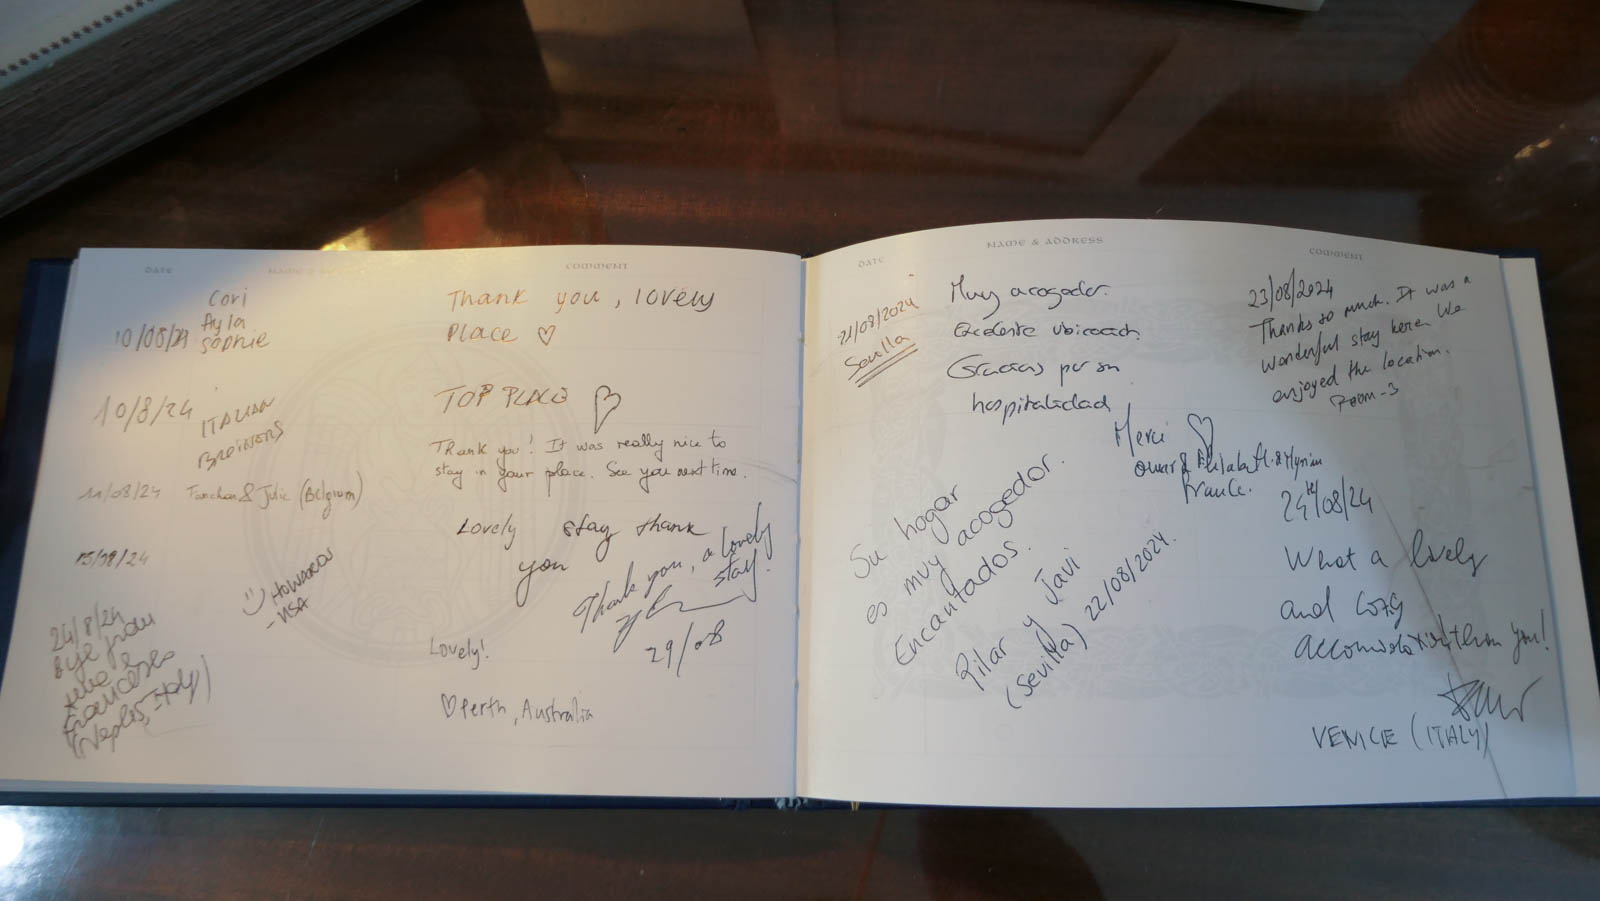 DATE
NAME &
COMMENT
Cori
Ayla
10/08/24 Sophie
Thank you, lovely
Place ♡
10/8/24
ITALIAN
TOP PLACE ♡
11/08/24 Fanchon & Julie (Belgium)
Thank you! It was really nice to
stay in your place. See you next time.
15/08/24
Lovely stay thank
you
HOWARD
- USA
Thank you, a lovely
stay!
29/08
24/8/24
Bye from
Francesco
(Naples, Italy)
Lovely!
♡ Perth, Australia
DATE
NAME & ADDRESS
COMMENT
21/08/2024
Sevilla
Muy acogedor.
Excelente
Gracias por su
hospitalidad
23/08/2024
Thanks so much. It was a
wonderful stay here. We
enjoyed the location.
Room-3
Merci ♡
Omar &
France.
Su hogar
es muy acogedor.
Encantados.
Pilar y Javi
(Sevilla) 22/08/2024.
24th/08/24
What a lovely
and cozy
thank you!
VENICE (ITALY)